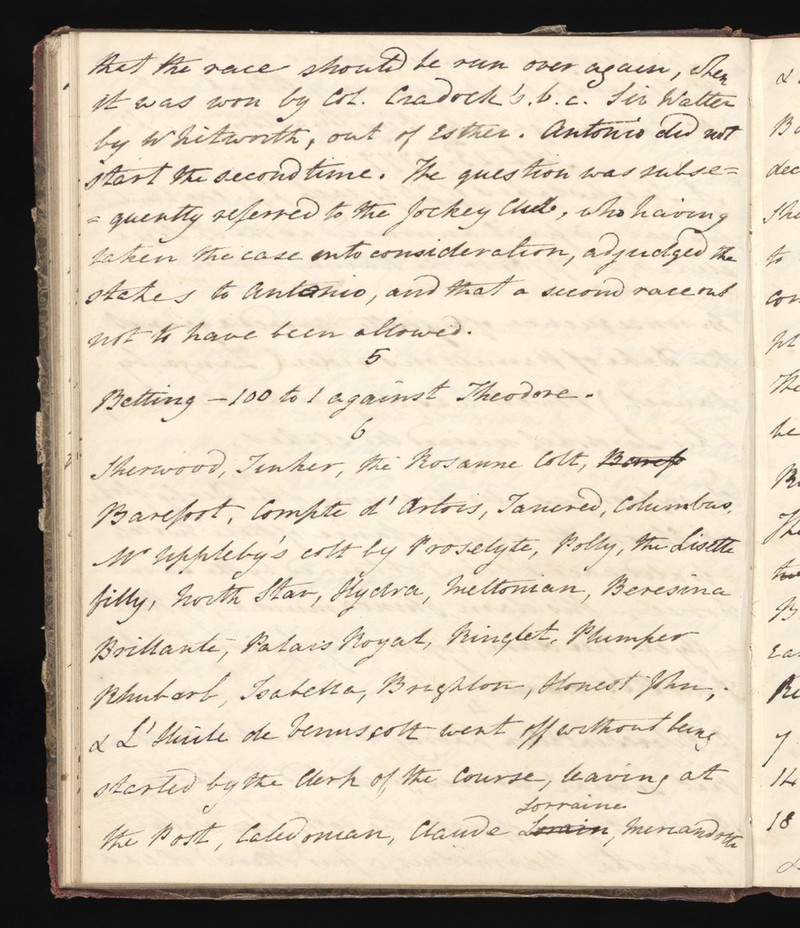 that the race should be run over again, when
it was won by Col. Cradock's. b. c. Sir Walter
by Whitworth, out of Esther. Antonio did not
start the second time. The question was subse=
= quently referred to the Jockey Club, who having
taken the case into consideration, adjudged the
stakes to Antonio, and that a second race out
not to have been allowed.
5
Betting - 100 to 1 against Theodore.
6
Sherwood, Tinker, the Rosanne Colt, Baref
Barefoot, Compte d'Artois, Tancred, Columbus,
Mr Uppleby's colt by Proselyte, Polly, the Lisette
filly, North Star, Hydra, Meltonian, Beresina
Brillante, Palais Royal, Ringlet, Plumper
Rhubarb, Isabella, Brighton, Honest John,
& L'Huile de Venus, colt went off without being
started by the Clerk of the Course, leaving at
Lorraine
the Post, Caledonian, Claude Lorain,
&
dec
to
con
The
be
7
14
18